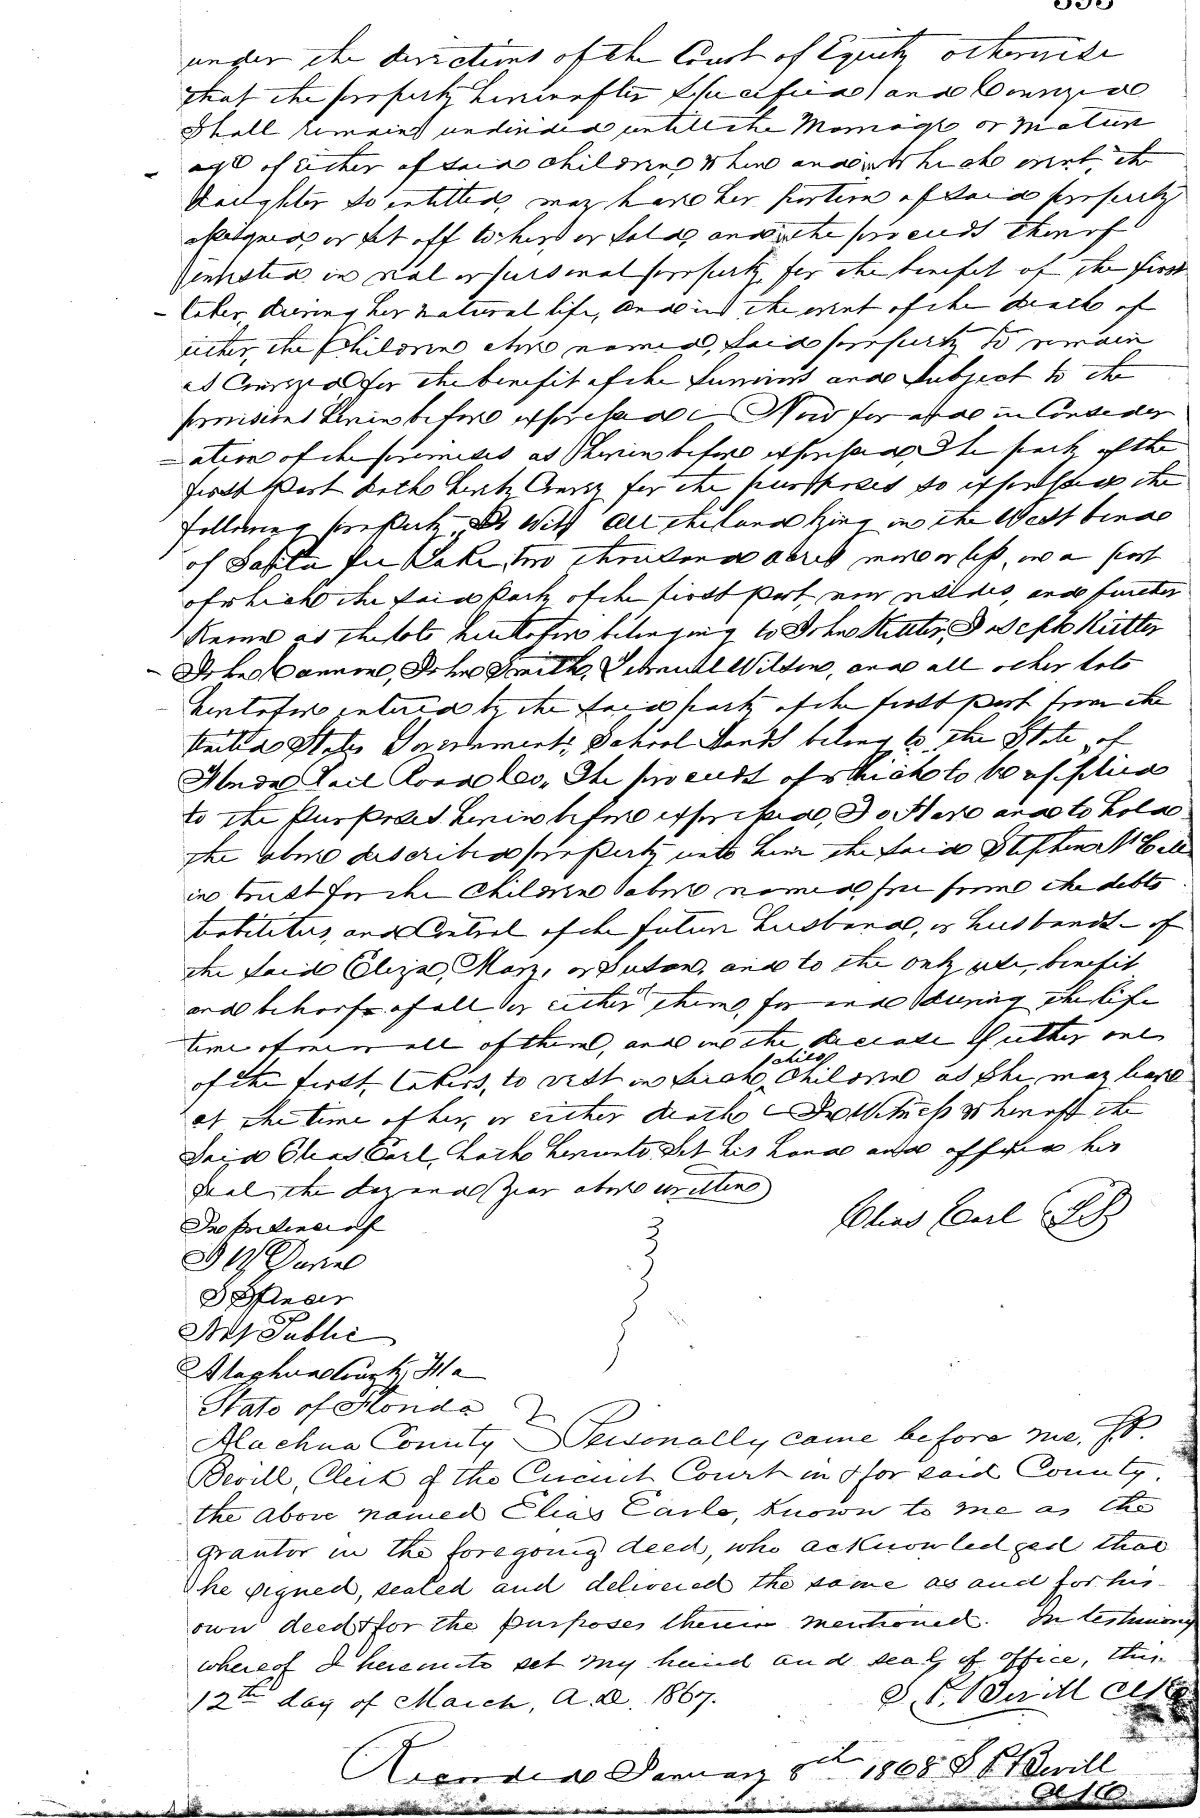 under the directions of the Court of Equity otherwise
that the property hereinafter specified and Conveyed
Shall remain undivided untill the Marriage or mature
age of either of said children, when and in which event, the
daughter so entitled, may have her portion of said property
assigned, or set off to her or sold, and the proceeds thereof
invested in real or personal property, for the benefit of the first
taker, during her natural life, and in the event of the death of
either, the Children above named, said property to remain
as Conveyed for the benefit of the Survivors and subject to the
provisions herein before expressed Now for and in Consider
ation of the premises as herein before expressed, The party of the
first Part doth hereby Convey for the purposes so expressed the
following property To Wit All the land lying in the West bend
of Lake, two thousand acres more or less, on a part
of which the said Party of the first part, now resides, and further
Known as the lots heretofore belonging to John, Joseph
John Cannon, John Smith, Wilson, and all other lots
heretofore entered by the said party of the first part from the
United States Government, School Lands belong to the State of
Florida Rail Road &co. The proceeds of which to be applied
to the Purposes herein before expressed, To Have and to hold
the above described property unto him the said Stephen
in trust for the children above named, free from the debts
liabilities, and Control of the future husband, or husbands of
the said Eliza, Mary, or Susan, and to the only use, benefit
and behoof of all or either of them, for and during the life
time of all of them, and in the decease of either one
of the first takers, to vest in such children as she may have
at the time of her, or either death In Witness whereof the
Said Elias Earl, hath hereunto set his hand and affixed his
Seal, the day and year above written
Elias Earl
In presence of
Not Public
Alachua County, Fla
State of Florida
Alachua County Personally came before me, S.P.
Bevill, Clerk of the Circuit Court in & for said County,
the above named Elias Earle, known to me as the
grantor in the foregoing deed, who acknowledged that
he signed, sealed and delivered the same as and for his
own deed & for the purposes therein mentioned. In testimony
whereof I hereunto set my hand and seal of office, this
12th day of March, A.D. 1867. S. P. Bevill Clk
Recorded January 8th 1868 S P Bevill
Clk